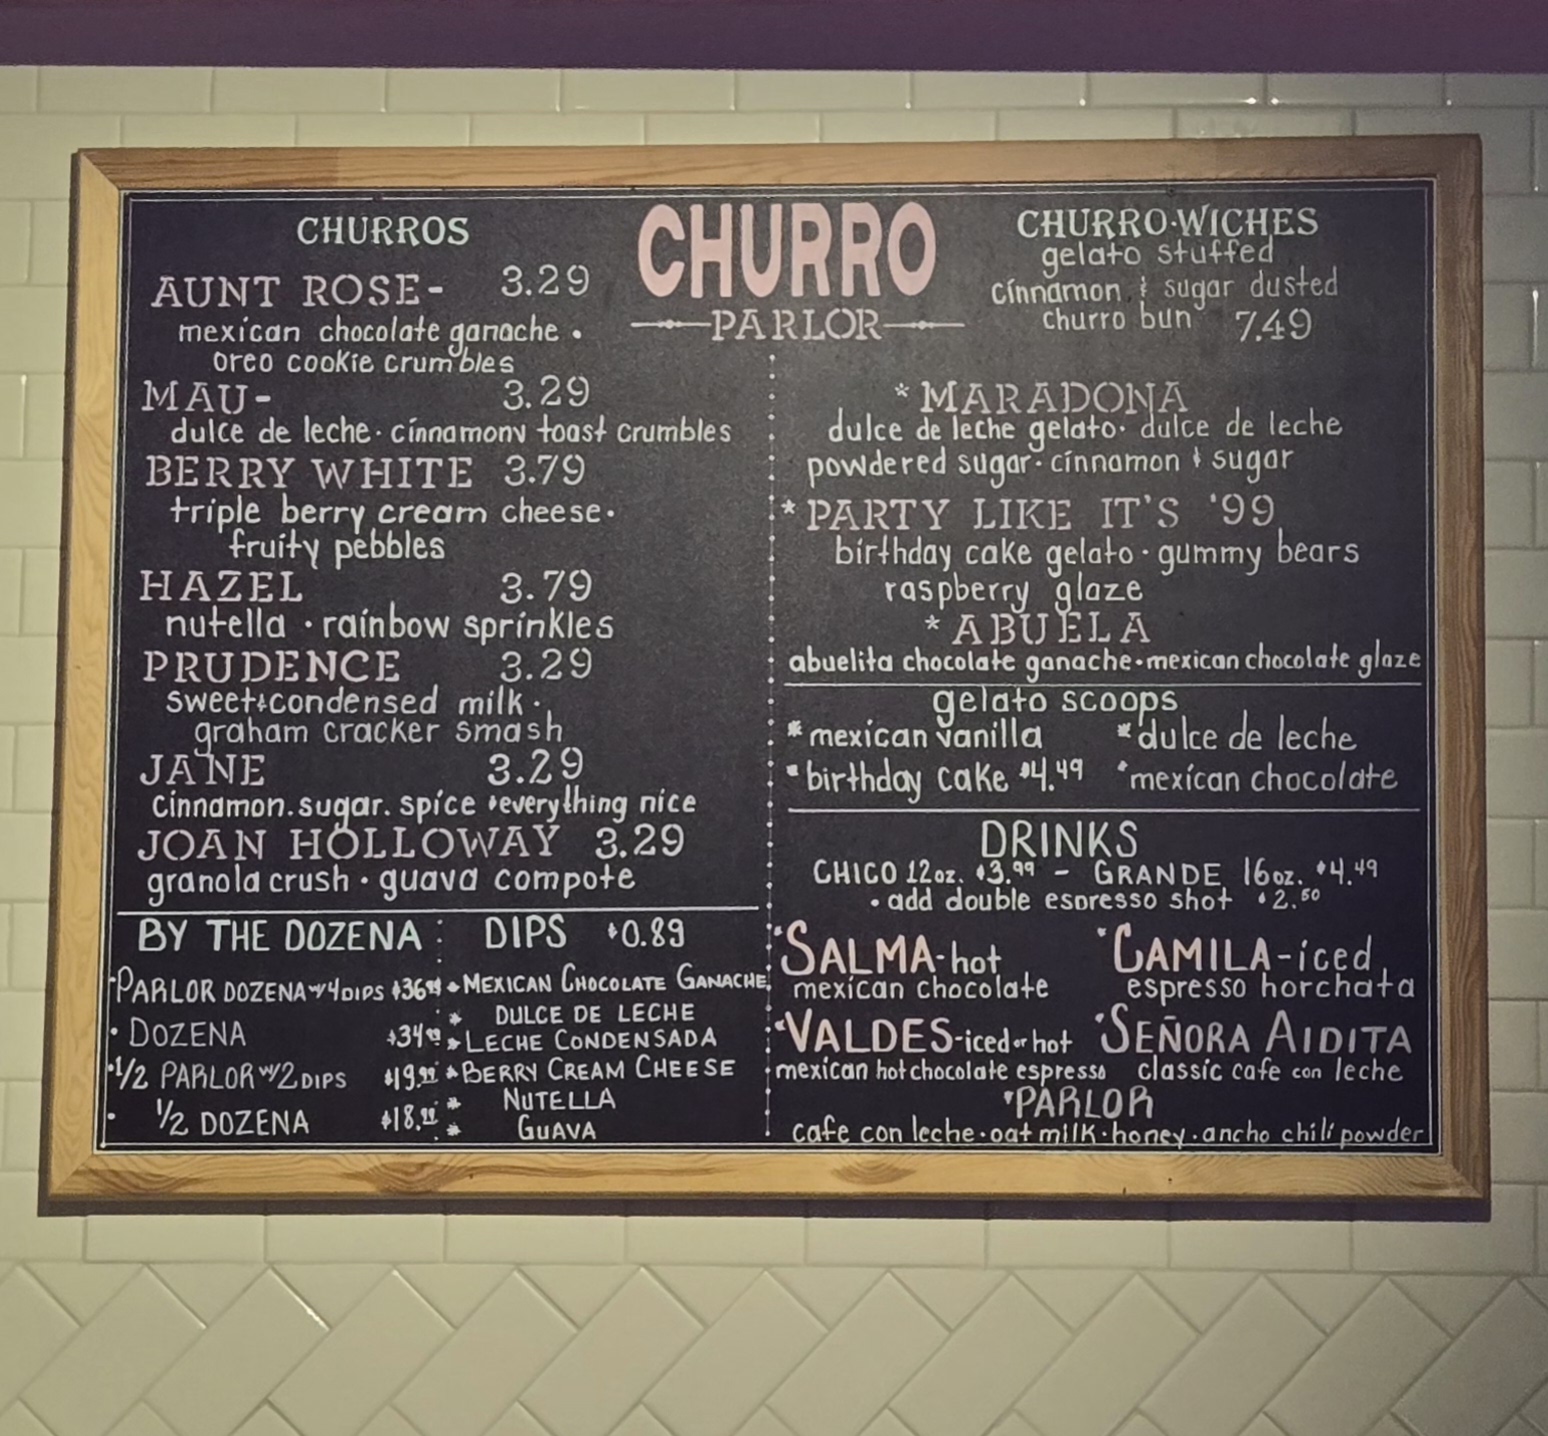 CHURRO
PARLOR
CHURROS
AUNT ROSE- 3.29
mexican chocolate ganache •
oreo cookie crumbles
MAU- 3.29
dulce de leche · cinnamon toast crumbles
BERRY WHITE 3.79
triple berry cream cheese ·
fruity pebbles
HAZEL 3.79
nutella · rainbow sprinkles
PRUDENCE 3.29
sweet & condensed milk ·
graham cracker smash
JANE 3.29
cinnamon. sugar. spice • everything nice
JOAN HOLLOWAY 3.29
granola crush · guava compote
BY THE DOZENA:
· PARLOR DOZENA w/ 4 DIPS
· DOZENA
· 1/2 PARLOR w/ 2 DIPS $19.99
· 1/2 DOZENA
DIPS $0.89
* MEXICAN CHOCOLATE GANACHE
* DULCE DE LECHE
* LECHE CONDENSADA
* BERRY CREAM CHEESE
* NUTELLA
* GUAVA
CHURRO·WICHES
gelato stuffed
cinnamon & sugar dusted
churro bun 7.49
* MARADONA
dulce de leche gelato · dulce de leche
powdered sugar · cinnamon & sugar
* PARTY LIKE IT'S '99
birthday cake gelato · gummy bears
raspberry glaze
* ABUELA
abuelita chocolate ganache · mexican chocolate glaze
gelato scoops
* mexican vanilla * dulce de leche
* birthday cake $4.49 * mexican chocolate
DRINKS
CHICO 12oz. $3.99 - GRANDE 16oz. $4.49
• add double espresso shot $2.50
* SALMA - hot
mexican chocolate
* CAMILA - iced
espresso horchata
* VALDES - iced or hot
mexican hot chocolate espresso
* SEÑORA AIDITA
classic cafe con leche
* PARLOR
cafe con leche · oat milk · honey · ancho chili powder